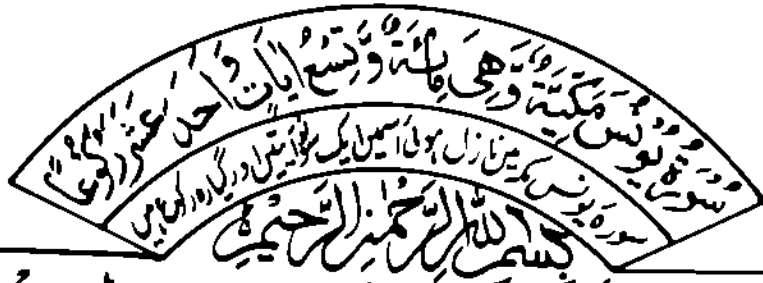 سُوْرَةُ يُوْنُسَ مَكِّيَّةٌ وَّهِيَ مِائَةٌ وَّتِسْعُ اٰيَاتٍ وَّاَحَدَ عَشَرَ رُكُوْعًا
سورہ یونس مکہ میں نازل ہوئی اسمیں ایک سو نو آیتیں اور گیارہ رکوع ہیں
بِسْمِ اللّٰهِ الرَّحْمٰنِ الرَّحِيْمِ